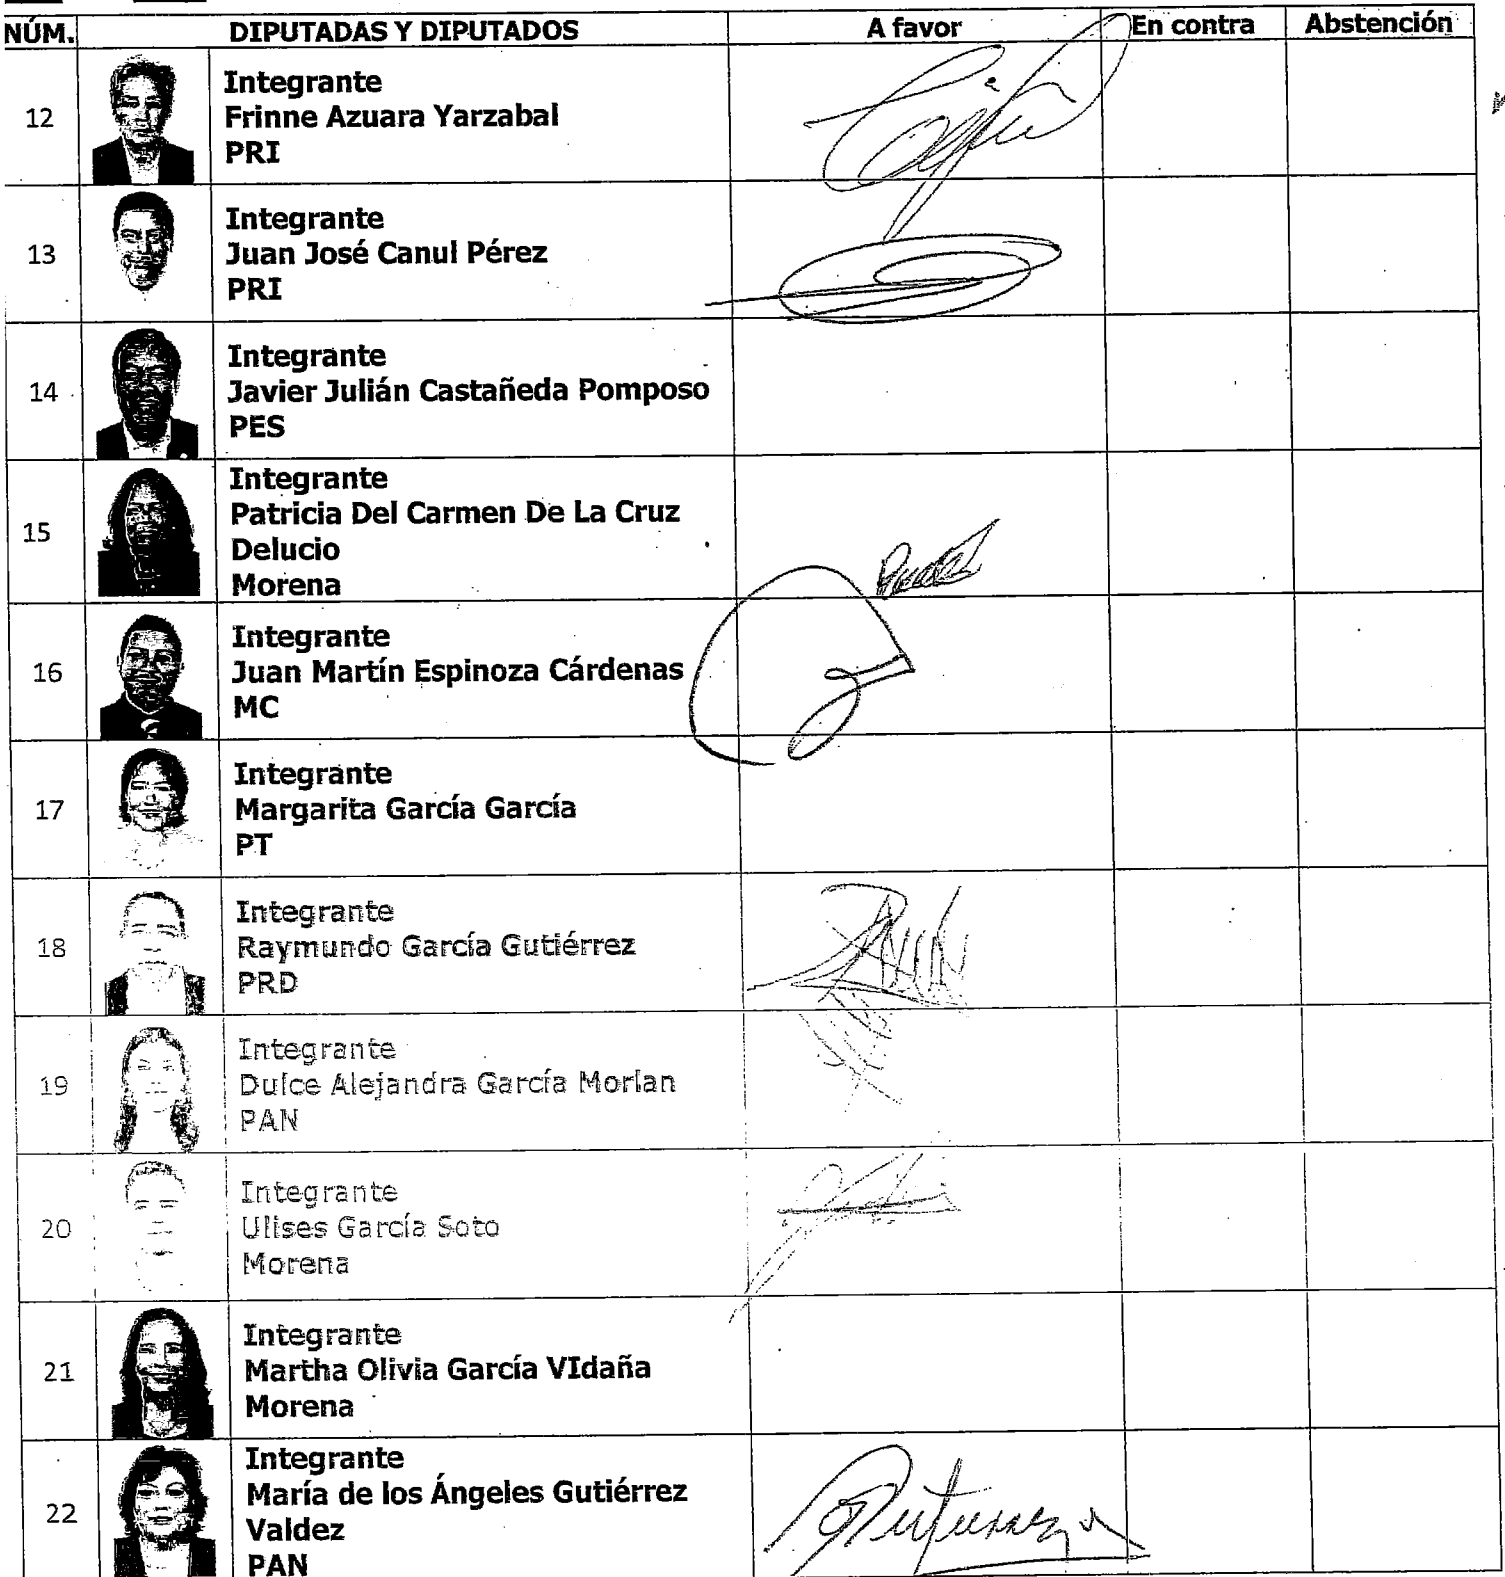 NÚM. DIPUTADAS Y DIPUTADOS A favor En contra Abstención
12
Integrante
Frinne Azuara Yarzabal
PRI
13
Integrante
Juan José Canul Pérez
PRI
14
Integrante
Javier Julián Castañeda Pomposo
PES
15
Integrante
Patricia Del Carmen De La Cruz
Delucio
Morena
16
Integrante
Juan Martín Espinoza Cárdenas
MC
17
Integrante
Margarita García García
PT
18
Integrante
Raymundo García Gutiérrez
PRD
19
Integrante
Dulce Alejandra García Morlan
PAN
20
Integrante
Ulises García Soto
Morena
21
Integrante
Martha Olivia García VIdaña
Morena
22
Integrante
María de los Ángeles Gutiérrez
Valdez
PAN